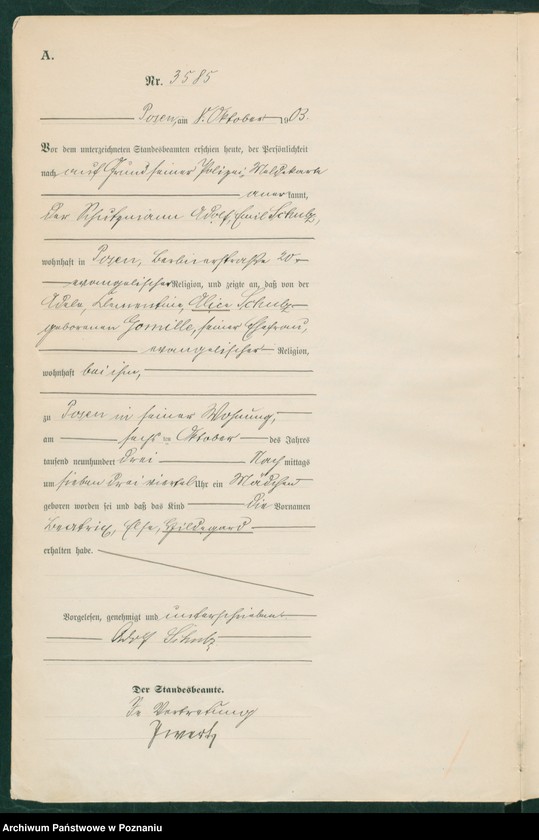 A.
Nr. 3585
Posen, am 8. Oktober 1903.
Vor dem unterzeichneten Standesbeamten erschien heute, der Persönlichkeit
nach auf Grund seiner Polizei-Meldekarte
anerkannt,
der Schutzmann Adolf, Emil Schulz,
wohnhaft in Posen, Berlinerstraße 20
evangelischer Religion, und zeigte an, daß von der
Adele, Klementine, Alice Schulz
geborenen Gomille, seiner Ehefrau,
evangelischer Religion,
wohnhaft bei ihm,
zu Posen in seiner Wohnung,
am sechsten Oktober des Jahres
tausend neunhundert drei Nachmittags
um sieben dreiviertel Uhr ein Mädchen
geboren worden sei und daß das Kind die Vornamen
Beatrix, Else, Hildegard
erhalten habe.
Vorgelesen, genehmigt und unterschrieben
Adolf Schulz
Der Standesbeamte.
In Vertretung
Archiwum Państwowe w Poznaniu